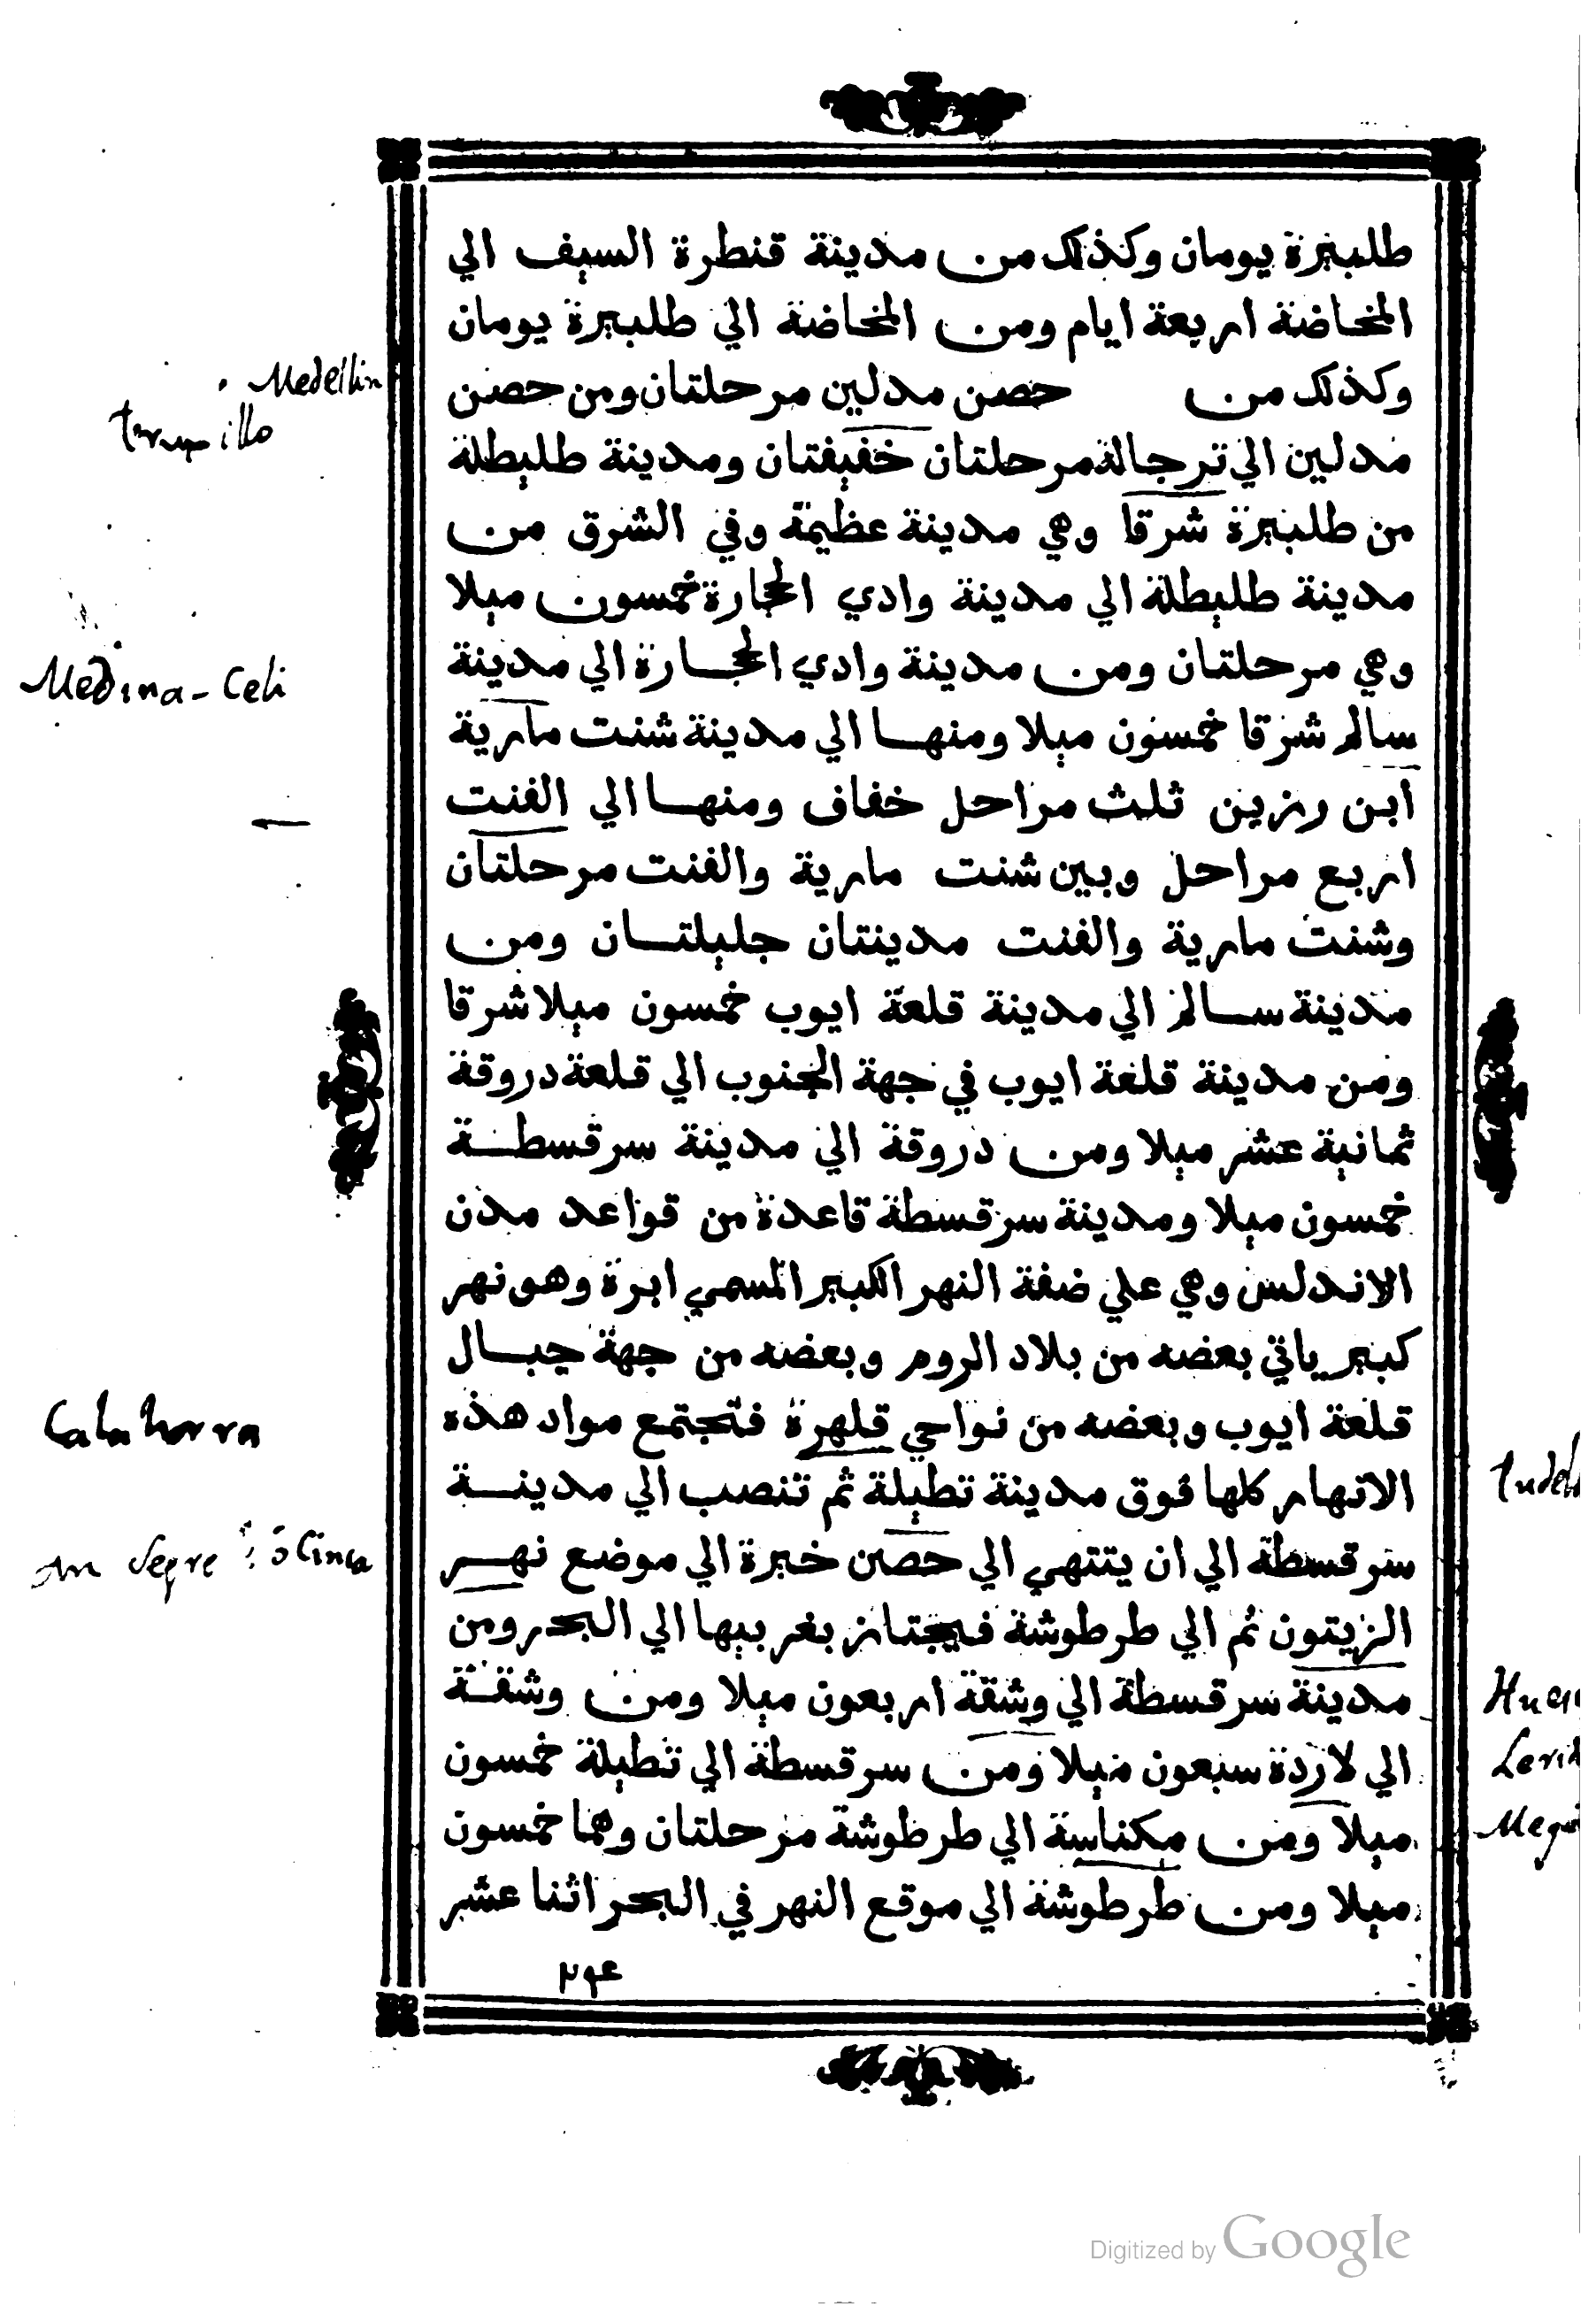 طلبيرة يومان وكذلك من مدينة قنطرة السيف الي
المخاضة اربعة ايام ومن المخاضة الي طلبيرة يومان
وكذلك من حصن مدلين مرحلتان ومن حصن
مدلين الي ترجالة مرحلتان خفيفتان ومدينة طليطلة
من طلبيرة شرقا وهي مدينة عظيمة وفي الشرق من
مدينة طليطلة الي مدينة وادي الحجارة خمسون ميلا
وهي مرحلتان ومن مدينة وادي الحجارة الي مدينة
سالم شرقا خمسون ميلا ومنها الي مدينة شنت مارية
ابن رزين ثلث مراحل خفاف ومنها الي الفنت
اربع مراحل وبين شنت مارية والفنت مرحلتان
وشنت مارية والفنت مدينتان جليلتان ومن
مدينة سالم الي مدينة قلعة ايوب خمسون ميلا شرقا
ومن مدينة قلعة ايوب في جهة الجنوب الي قلعة دروقة
ثمانية عشر ميلا ومن دروقة الي مدينة سرقسطة
خمسون ميلا ومدينة سرقسطة قاعدة من قواعد مدن
الاندلس وهي علي ضفة النهر الكبير المسمي ابرة وهو نهر
كبير ياتي بعضه من بلاد الروم وبعضه من جهة جبال
قلعة ايوب وبعضه من نواحي قلهرة فتجتمع مواد هذه
الانهار كلها فوق مدينة تطيلة ثم تنصب الي مدينة
سرقسطة الي ان ينتهي الي حصن خبرة الي موضع نهر
الزيتون ثم الي طرطوشة فيجتاز بغربيها الي البحر ومن
مدينة سرقسطة الي وشقة اربعون ميلا ومن وشقة
الي لاردة سبعون ميلا ومن سرقسطة الي تطيلة خمسون
ميلا ومن مكناسة الي طرطوشة مرحلتان وهما خمسون
ميلا ومن طرطوشة الي موقع النهر في البحر اثنا عشر
Medellin
trupillo
Medina-Celi
Calahorra
Segre ó Cinca
Digitized by Google